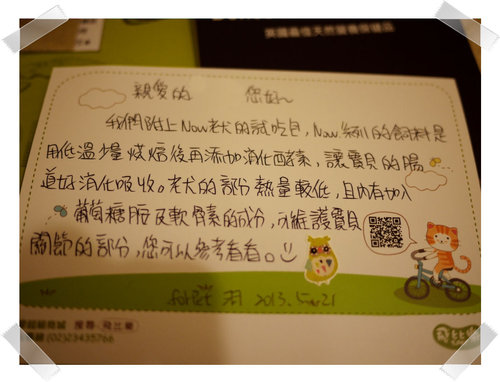 親愛的 您好~
我們附上Now老犬的試吃包,Now系列的飼料是
用低溫慢烘焙後再添加消化酵素,讓寶貝的腸
道好消化吸收。老犬的部分熱量較低,且內有加入
葡萄糖胺及軟骨素的成分,可維護寶貝
關節的部分,您可以參考看看。
2013.
搜尋 飛比樂
(02)23435766